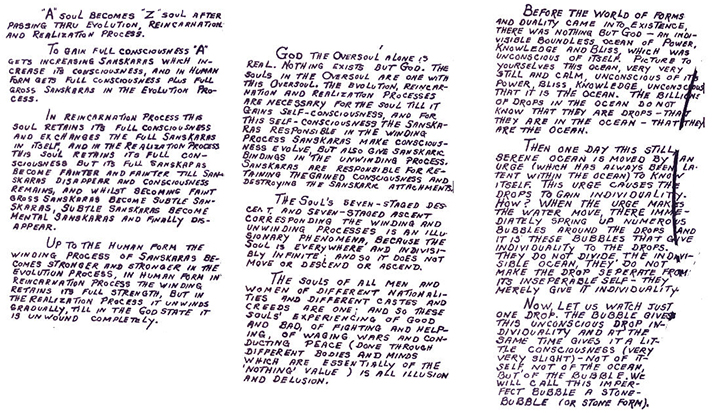 "A" SOUL BECOMES "Z" SOUL AFTER
PASSING THRU EVOLUTION, REINCARNATION
AND REALIZATION PROCESS.
TO GAIN FULL CONSCIOUSNESS "A"
GETS INCREASING SANSKARAS WHICH IN-
CREASE ITS CONSCIOUSNESS, AND IN HUMAN
FORM GETS FULL CONSCIOUSNESS PLUS FULL
GROSS SANSKARAS IN THE EVOLUTION PRO-
CESS.
IN REINCARNATION PROCESS THIS
SOUL RETAINS ITS FULL CONSCIOUSNESS
AND EXCHANGES THE FULL SANSKARAS
IN ITSELF, AND IN THE REALIZATION PROCESS
THIS SOUL RETAINS ITS FULL CON-
SCIOUSNESS BUT ITS FULL SANSKARAS
BECOME FAINTER AND FAINTER TILL SAN-
SKARAS DISAPPEAR AND CONSCIOUSNESS
REMAINS, AND WHILST BECOMING FAINT
GROSS SANSKARAS BECOME SUBTLE SAN-
SKARAS, SUBTLE SANSKARAS BECOME
MENTAL SANSKARAS AND FINALLY DIS-
APPEAR.
UP TO THE HUMAN FORM THE
WINDING PROCESS OF SANSKARAS BE-
COMES STRONGER AND STRONGER IN THE
EVOLUTION PROCESS. IN HUMAN FORM IN
REINCARNATION PROCESS THE WINDING
RETAINS ITS FULL STRENGTH, BUT IN
THE REALIZATION PROCESS IT UNWINDS
GRADUALLY, TILL IN THE GOD STATE IT
IS UNWOUND COMPLETELY.
GOD THE OVERSOUL ALONE IS
REAL. NOTHING EXISTS BUT GOD. THE
SOULS IN THE OVERSOUL ARE ONE WITH
THIS OVERSOUL. THE EVOLUTION, REINCAR-
NATION AND REALIZATION PROCESSES
ARE NECESSARY FOR THE SOUL TILL IT
GAINS SELF-CONSCIOUSNESS, AND FOR
THIS SELF-CONSCIOUSNESS THE SANSKA-
RAS RESPONSIBLE IN THE WINDING
PROCESS SANSKARAS MAKE CONSCIOUS-
NESS EVOLVE, BUT ALSO GIVE SANSKARIC
BINDINGS IN THE UNWINDING PROCESS.
SANSKARAS ARE RESPONSIBLE FOR RE-
TAINING THE GAINED CONSCIOUSNESS AND
DESTROYING THE SANSKARIC ATTACHMENTS.
THE SOUL'S SEVEN-STAGED DES-
CENT, AND SEVEN-STAGED ASCENT
CORRESPONDING THE WINDING AND
UNWINDING PROCESSES IS AN ILLU-
SIONARY PHENOMENA, BECAUSE THE
SOUL IS EVERYWHERE AND INDIVISI-
BLY INFINITE; AND SO IT DOES NOT
MOVE OR DESCEND OR ASCEND.
THE SOULS OF ALL MEN AND
WOMEN OF DIFFERENT NATIONALI-
TIES AND DIFFERENT CASTES AND
CREEDS ARE ONE; AND SO THESE
SOULS' EXPERIENCING OF GOOD
AND BAD, OF FIGHTING AND HELP-
ING, OF WAGING WARS AND CON-
DUCTING PEACE (DONE THROUGH
DIFFERENT BODIES AND MINDS
WHICH ARE ESSENTIALLY OF THE
'NOTHING' VALUE) IS ALL ILLUSION
AND DELUSION.
BEFORE THE WORLD OF FORMS
AND DUALITY CAME INTO EXISTENCE,
THERE WAS NOTHING BUT GOD - AN INDI-
VISIBLE BOUNDLESS OCEAN OF POWER,
KNOWLEDGE AND BLISS, WHICH WAS
UNCONSCIOUS OF ITSELF. PICTURE TO
YOURSELVES THIS OCEAN, VERY VERY
STILL AND CALM, UNCONSCIOUS OF ITS
POWER, BLISS, KNOWLEDGE, UNCONSCIOUS
THAT IT IS THE OCEAN. THE BILLIONS
OF DROPS IN THE OCEAN DO NOT
KNOW THAT THEY ARE DROPS - THAT
THEY ARE IN THE OCEAN - THAT THEY
ARE THE OCEAN.
THEN ONE DAY THIS STILL,
SERENE OCEAN IS MOVED BY AN
URGE (WHICH HAS ALWAYS BEEN LA-
TENT WITHIN THE OCEAN) TO KNOW
ITSELF. THIS URGE CAUSES THE
DROPS TO GAIN INDIVIDUALITY.
HOW? WHEN THE URGE MAKES
THE WATER MOVE, THERE IMME-
DIATELY SPRING UP NUMEROUS
BUBBLES AROUND THE DROPS AND
IT IS THESE BUBBLES THAT GIVE
INDIVIDUALITY TO THE DROPS.
THEY DO NOT DIVIDE THE INDIV-
SIBLE OCEAN, THEY DO NOT
MAKE THE DROP SEPERATE FROM
ITS INSEPERABLE SELF - THEY
MERELY GIVE IT INDIVIDUALITY
NOW, LET US WATCH JUST
ONE DROP. THE BUBBLE GIVES
THIS UNCONSCIOUS DROP IN-
DIVIDUALITY AND AT THE
SAME TIME GIVES IT A LIT-
TLE CONSCIOUSNESS (VERY
VERY SLIGHT) - NOT OF IT-
SELF, NOT OF THE OCEAN,
BUT OF THE BUBBLE. WE
WILL CALL THIS IMPER-
FECT BUBBLE A STONE-
BUBBLE (OR STONE FORM).